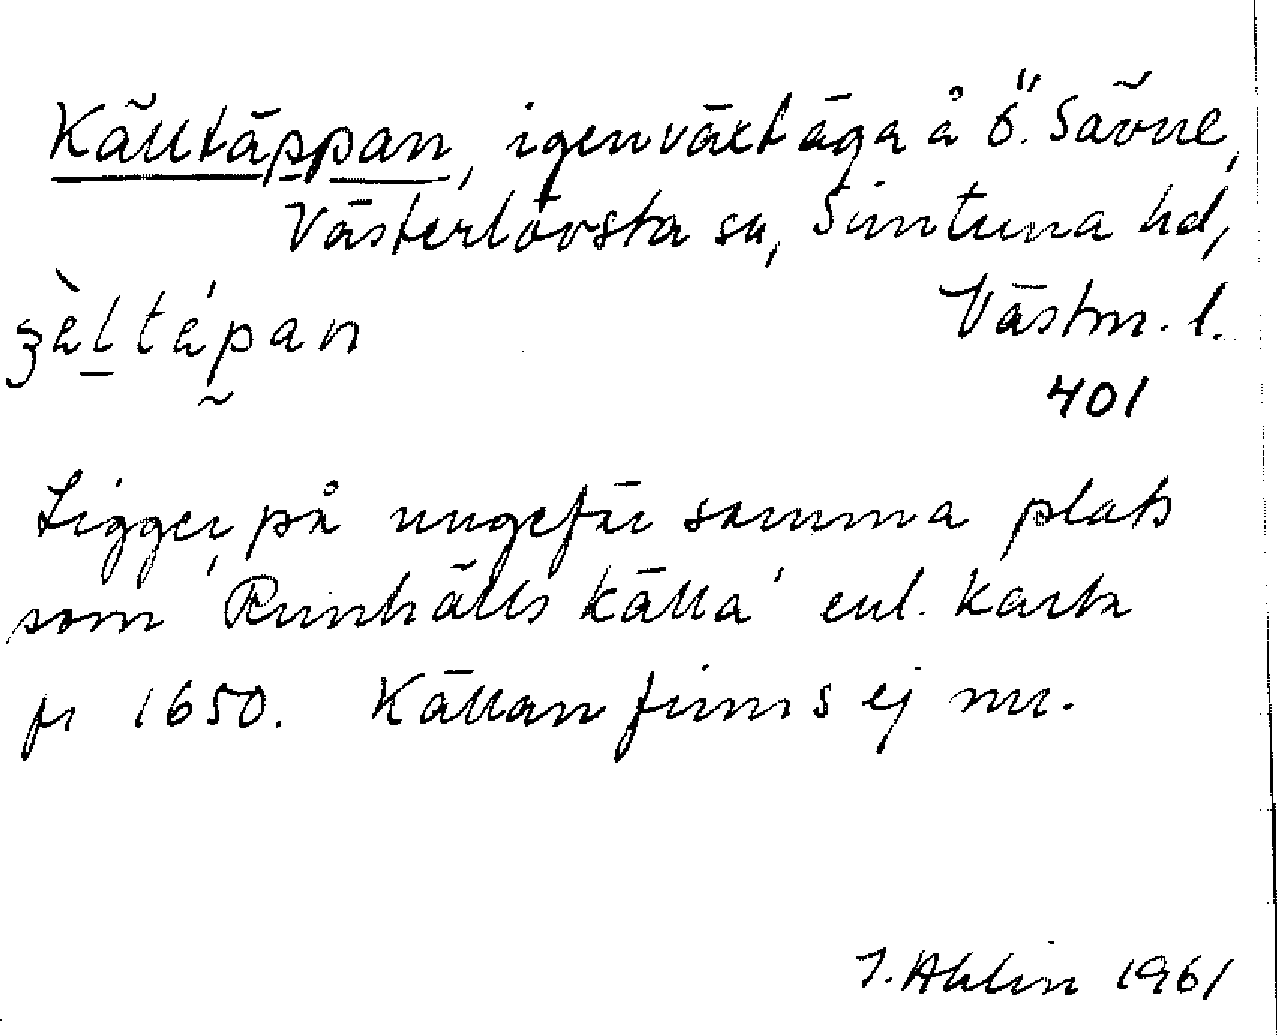 Källtäppan, igenväxt äga å Ö. Sävne,
Västerlövsta sn, Simtuna hd,
Västm. l.
401
Ligger på ungefär samma plats
som 'Runhälls källa' enl. karta
fr 1650. Källan finns ej nu.
J. Ahlin 1961